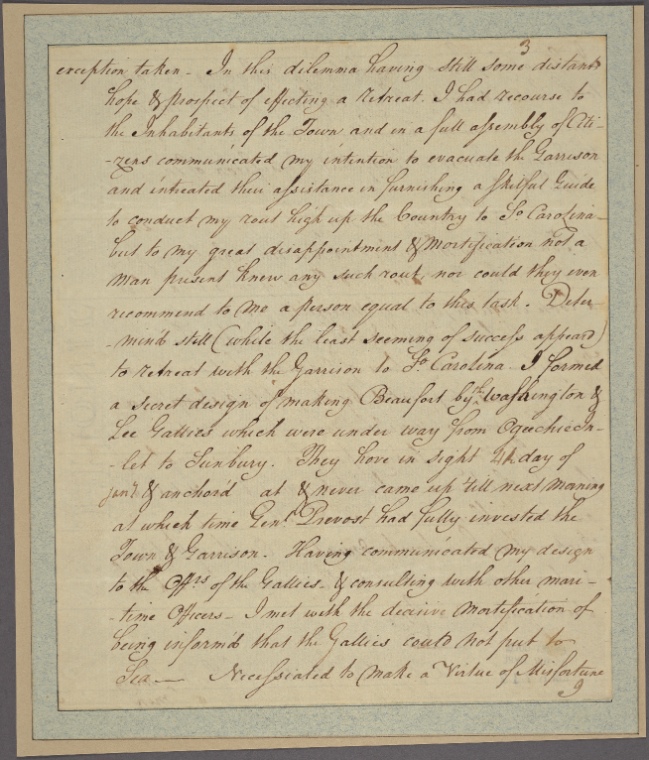 3
exception taken - In this dilemma having still some distant
hope & prospect of effecting a retreat. I had recourse to
the Inhabitants of the Town and in a full assembly of Citi-
-zens communicated my intention to evacuate the Garrison
and intreated their assistance in furnishing a skilful Guide
to conduct my rout high up the Country to So Carolina -
but to my great disappointment & Mortification not a
man present knew any such rout, nor could they even
recommend to me a person equal to this task. Deter
-mind still (while the least seeming of success appeard)
to retreat with the Garrison to So Carolina - I formed
a secret design of making Beaufort by the Washington &
Lee Gallies which were under way from Ogechie In-
-let to Sunbury. They hove in sight 4th day of
Jany & anchord at & never came up 'till next morning
at which time Genl Prevost had fully invested the
Town & Garrison. Having communicated my design
to the Offrs of the Gallies - & consulting with other mari-
-time Officers - I met with the decisive mortification of
being informd that the Gallies could not put to
Sea — Necessiated to make a Virtue of Misfortune